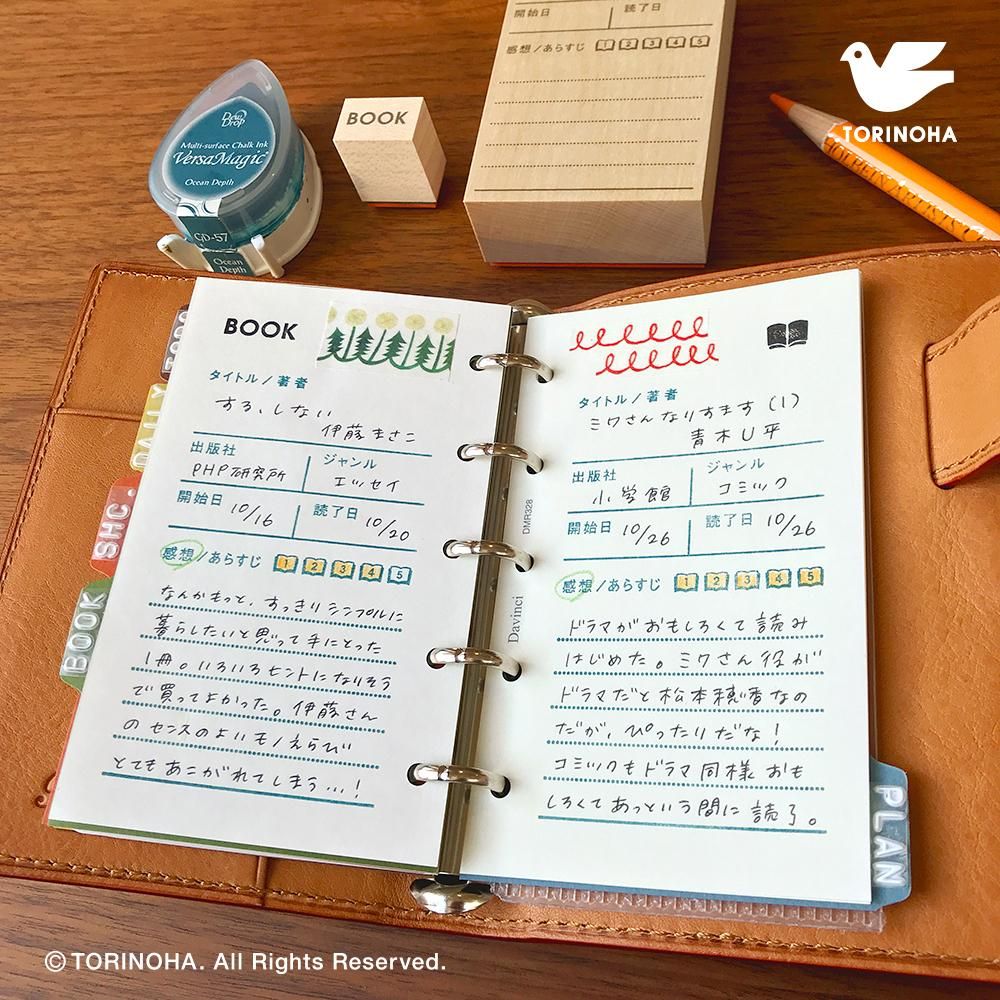 開始日 読了日
感想/あらすじ 1 2 3 4 5
TORINOHA
BOOK
Dew Drop
Multi-surface Chalk Ink
VersaMagic
Ocean Depth
GD-57
Ocean Depth
DAILY
SHC.
BOOK
BOOK
タイトル/著者
する、しない
伊藤まさこ
出版社 ジャンル
PHP研究所 エッセイ
開始日 10/16 読了日 10/20
感想/あらすじ 1 2 3 4 5
なんかもっと、すっきりシンプルに
暮らしたいと思って手にとった
1冊。いろいろヒントになりそう
で買ってよかった。伊藤さん
のセンスのよいモノえらび
とてもあこがれてしまう…!
DMR328
Davinci
タイトル/著者
ミワさんなりすます(1)
青木U平
出版社 ジャンル
小学館 コミック
開始日 10/26 読了日 10/26
感想/あらすじ 1 2 3 4 5
ドラマがおもしろくて読み
はじめた。ミワさん役が
ドラマだと松本穂香なの
だが、ぴったりだな!
コミックもドラマ同様おも
しろくてあっという間に読了。
PLAN
© TORINOHA. All Rights Reserved.